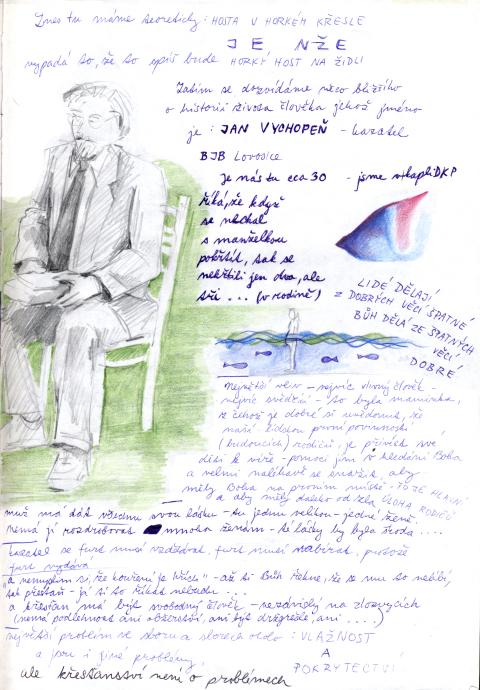 Dnes tu máme teoreticky: HOSTA V HORKÉM KŘESLE
JE NŽE
vypadá to, že to spíš bude HORKÝ HOST NA ŽIDLI
Zatím se dozvídáme něco bližšího
o historii života člověka jehož jméno
je: JAN VYCHOPEŇ - kazatel
BJB Lovosice
Je nás tu cca 30 - jsme v kapli DKP
říká, že když
se nechal
s manželkou
pokřtít, tak se
nekřtili jen dva, ale
tři ... (v rodině)
LIDÉ DĚLAJÍ
Z DOBRÝCH VĚCÍ ŠPATNÉ
BŮH DĚLÁ ZE ŠPATNÝCH
VĚCÍ
DOBRÉ
největší vliv - nejvíc vlivný člověk -
nejvíc svědčil - to byla maminka,
z čehož je dobré si uvědomit, že
naší řádou první povinností
(budoucích) rodičů, je přivést své
děti k víře - pomoci jim v hledání Boha
a velmi naléhavě se snažit, aby
měly Boha na prvním místě - TO JE HLAVNÍ
a aby měly daleko od zla ÚLOHA RODIČŮ
muž má dát všechnu svou lásku - tu jednu velkou - jedné ženě.
nemá jí rozdrobovat mnoha ženám - té lásky by byla škoda ....
kazatel se furt musí vzdělávat, furt musí nabírat, protože
furt vydává
a nemyslím si, že kouření je hřích" - až ti Bůh řekne, že se mu to nelíbí,
tak přestaň - já ti to říkat nebudu ...
a křesťan má být svobodný člověk - nezávislý na zlozvycích
(nemá podlehnout ani obžerství, ani být držgrešle, ani ....)
největší problém ve sboru a sborech okolo: VLAŽNOST
A
POKRYTECTVÍ
a jsou i jiné problémy,
ale křesťanství není o problémech